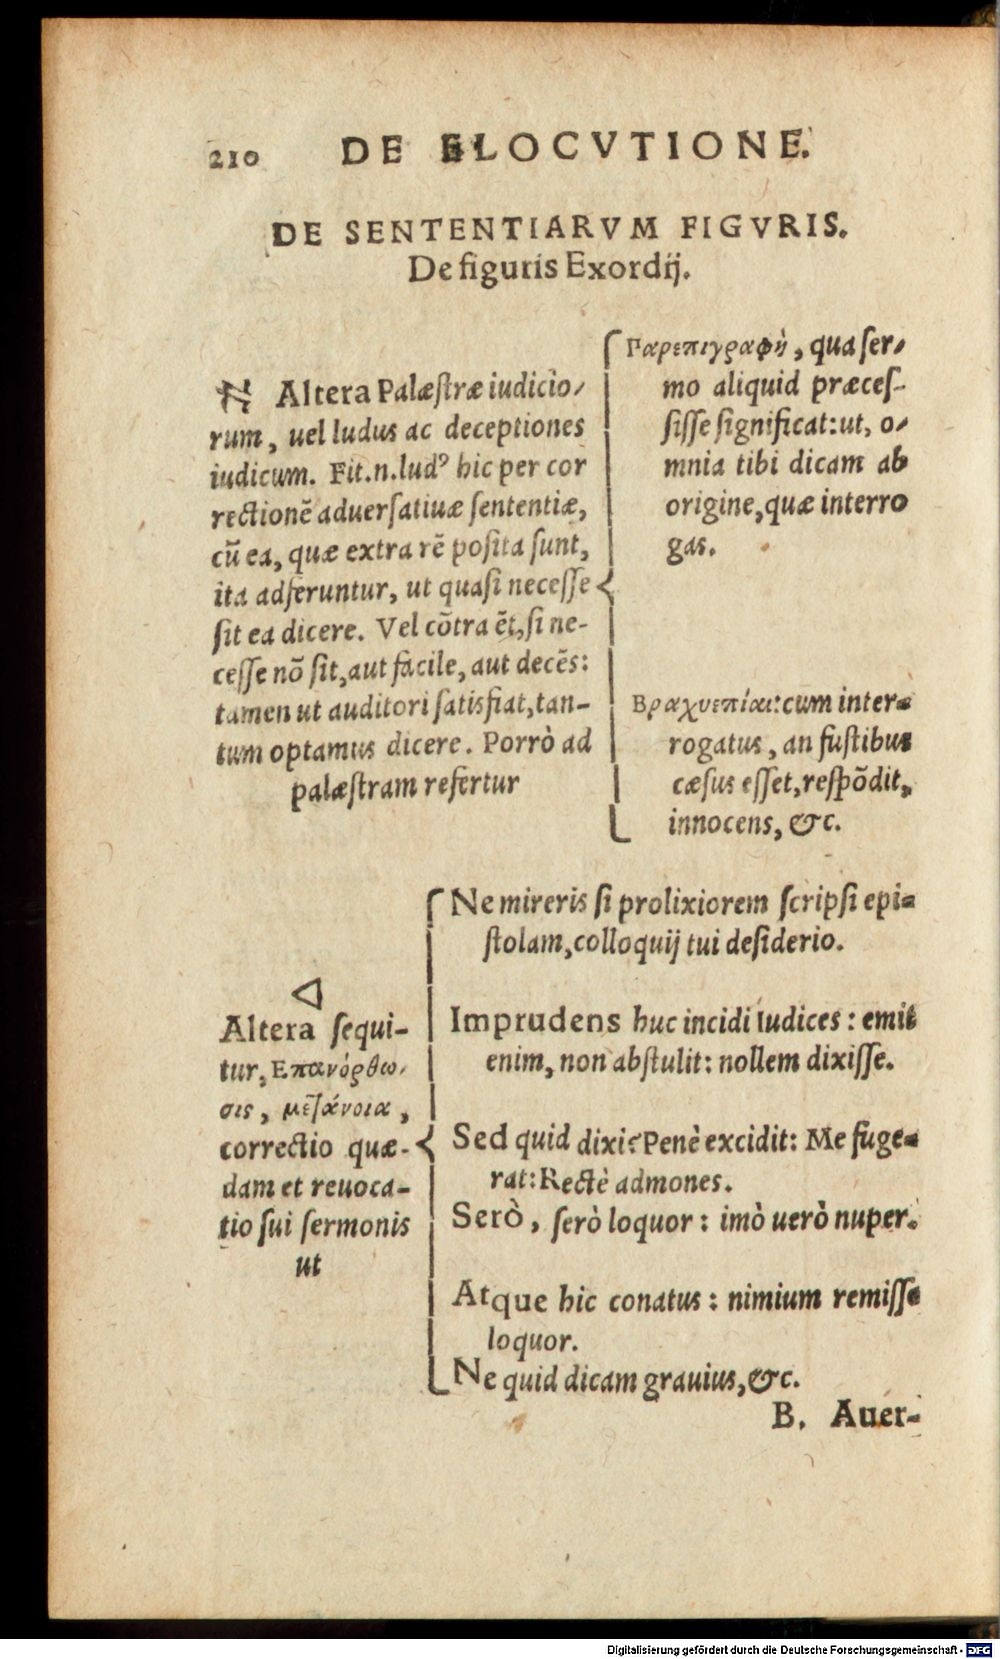 210 DE ELOCVTIONE.
DE SENTENTIARVM FIGVRIS.
De figuris Exordij.
Altera Palæſtræ iudicio-
rum, uel ludus ac deceptiones
iudicum. Fit.n.ludꝰ hic per cor
rectionē aduerſatiuæ ſententiæ,
cū ea, quæ extra rē poſita ſunt,
ita adferuntur, ut quaſi neceſſe
ſit ea dicere. Vel cōtra ēt, ſi ne-
ceſſe nō ſit, aut facile, aut decēs:
tamen ut auditori ſatisfiat, tan-
tum optamus dicere. Porrò ad
palæſtram refertur
Παρεπιγραφὴ, qua ſer-
mo aliquid præceſ-
ſiſſe ſignificat: ut, o-
mnia tibi dicam ab
origine, quæ interro
gas.
Βραχυεπίαι: cum inter-
rogatus, an fuſtibus
cæſus eſſet, reſpōdit,
innocens, &c.
◁
Altera ſequi-
tur, Επανόρθω-
σις, μετάνοια,
correctio quæ-
dam et reuoca-
tio ſui ſermonis
ut
Ne mireris ſi prolixiorem ſcripſi epi-
ſtolam, colloquij tui deſiderio.
Imprudens huc incidi Iudices: emit
enim, non abſtulit: nollem dixiſſe.
Sed quid dixi? Penè excidit: Me fuge-
rat: Rectè admones.
Serò, ſerò loquor: imò uerò nuper.
Atque hic conatus: nimium remiſſe
loquor.
Ne quid dicam grauius, &c.
B. Auer-
Digitalisierung gefördert durch die Deutsche Forschungsgemeinschaft - DFG